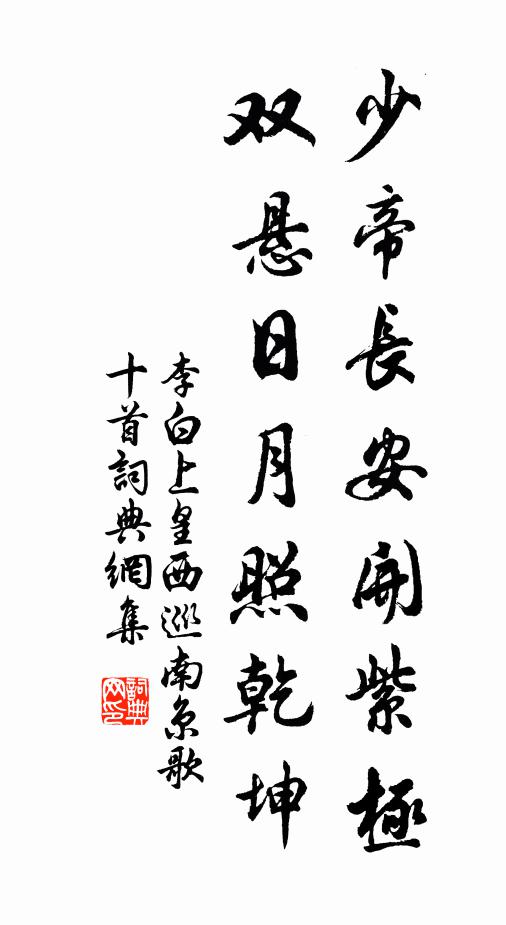 少帝長安開紫極
双悬日月照乾坤
李白上皇西巡南京歌
十首詞典網集
詞典网印